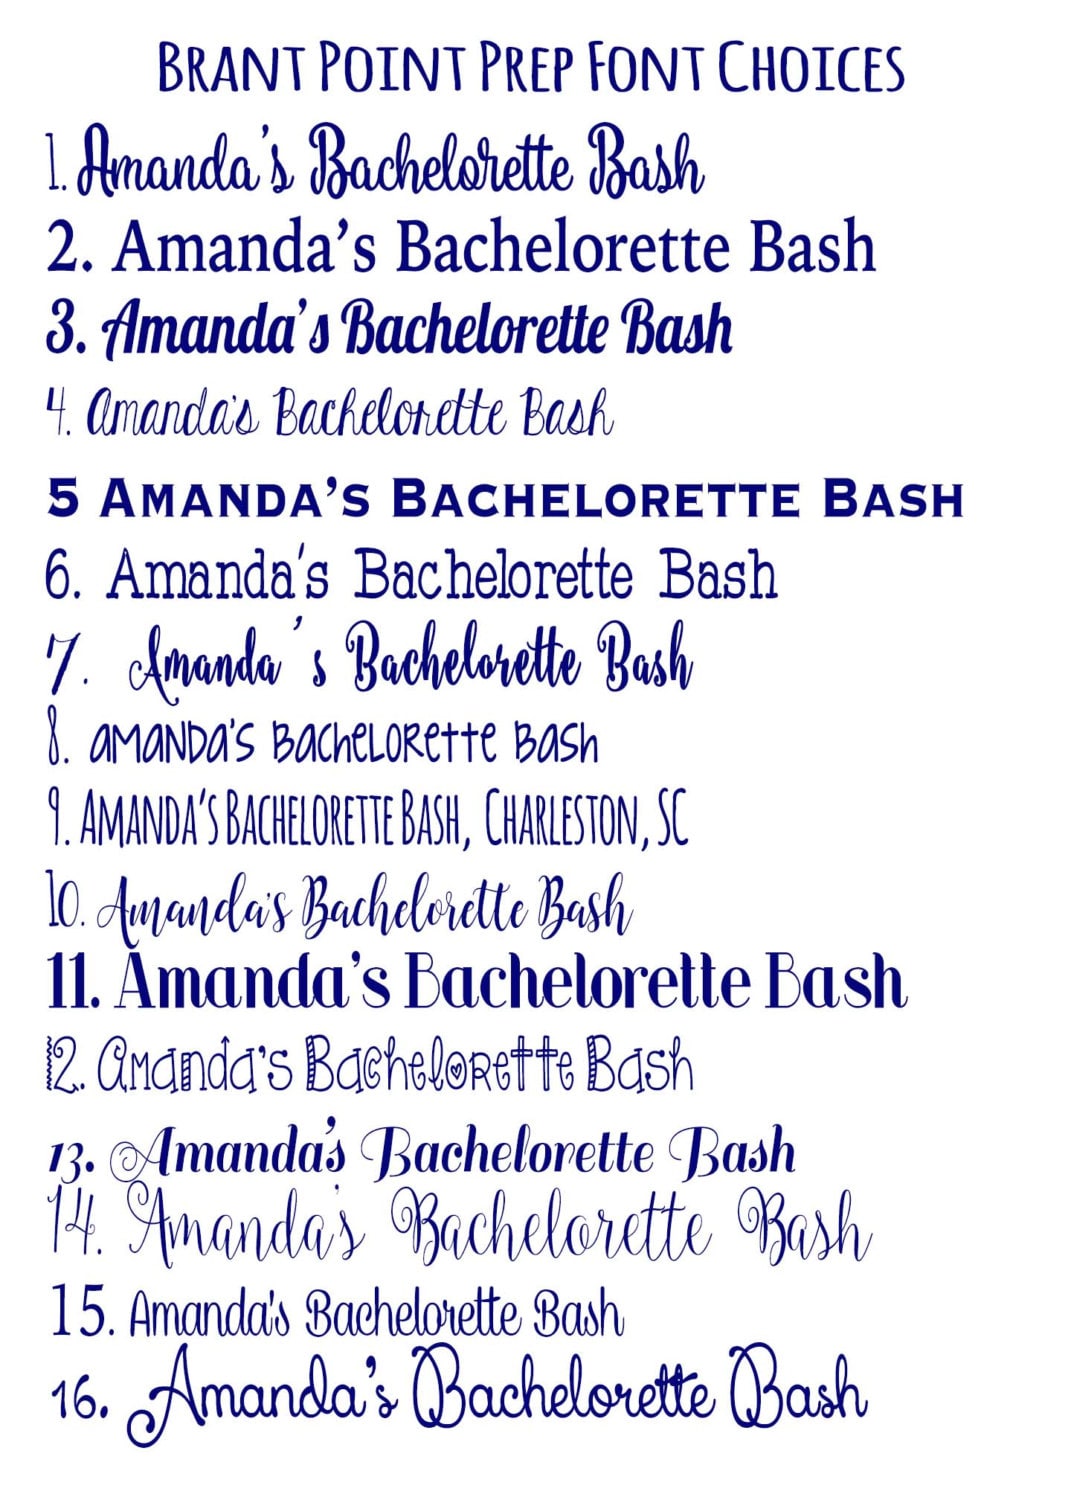 Brant Point Prep Font Choices
1. Amanda's Bachelorette Bash
2. Amanda's Bachelorette Bash
3. Amanda's Bachelorette Bash
4. Amanda's Bachelorette Bash
5 Amanda's Bachelorette Bash
6. Amanda's Bachelorette Bash
7. Amanda's Bachelorette Bash
8. Amanda's Bachelorette Bash
9. Amanda's Bachelorette Bash, Charleston, SC
10. Amanda's Bachelorette Bash
11. Amanda's Bachelorette Bash
12. Amanda's Bachelorette Bash
13. Amanda's Bachelorette Bash
14. Amanda's Bachelorette Bash
15. Amanda's Bachelorette Bash
16. Amanda's Bachelorette Bash